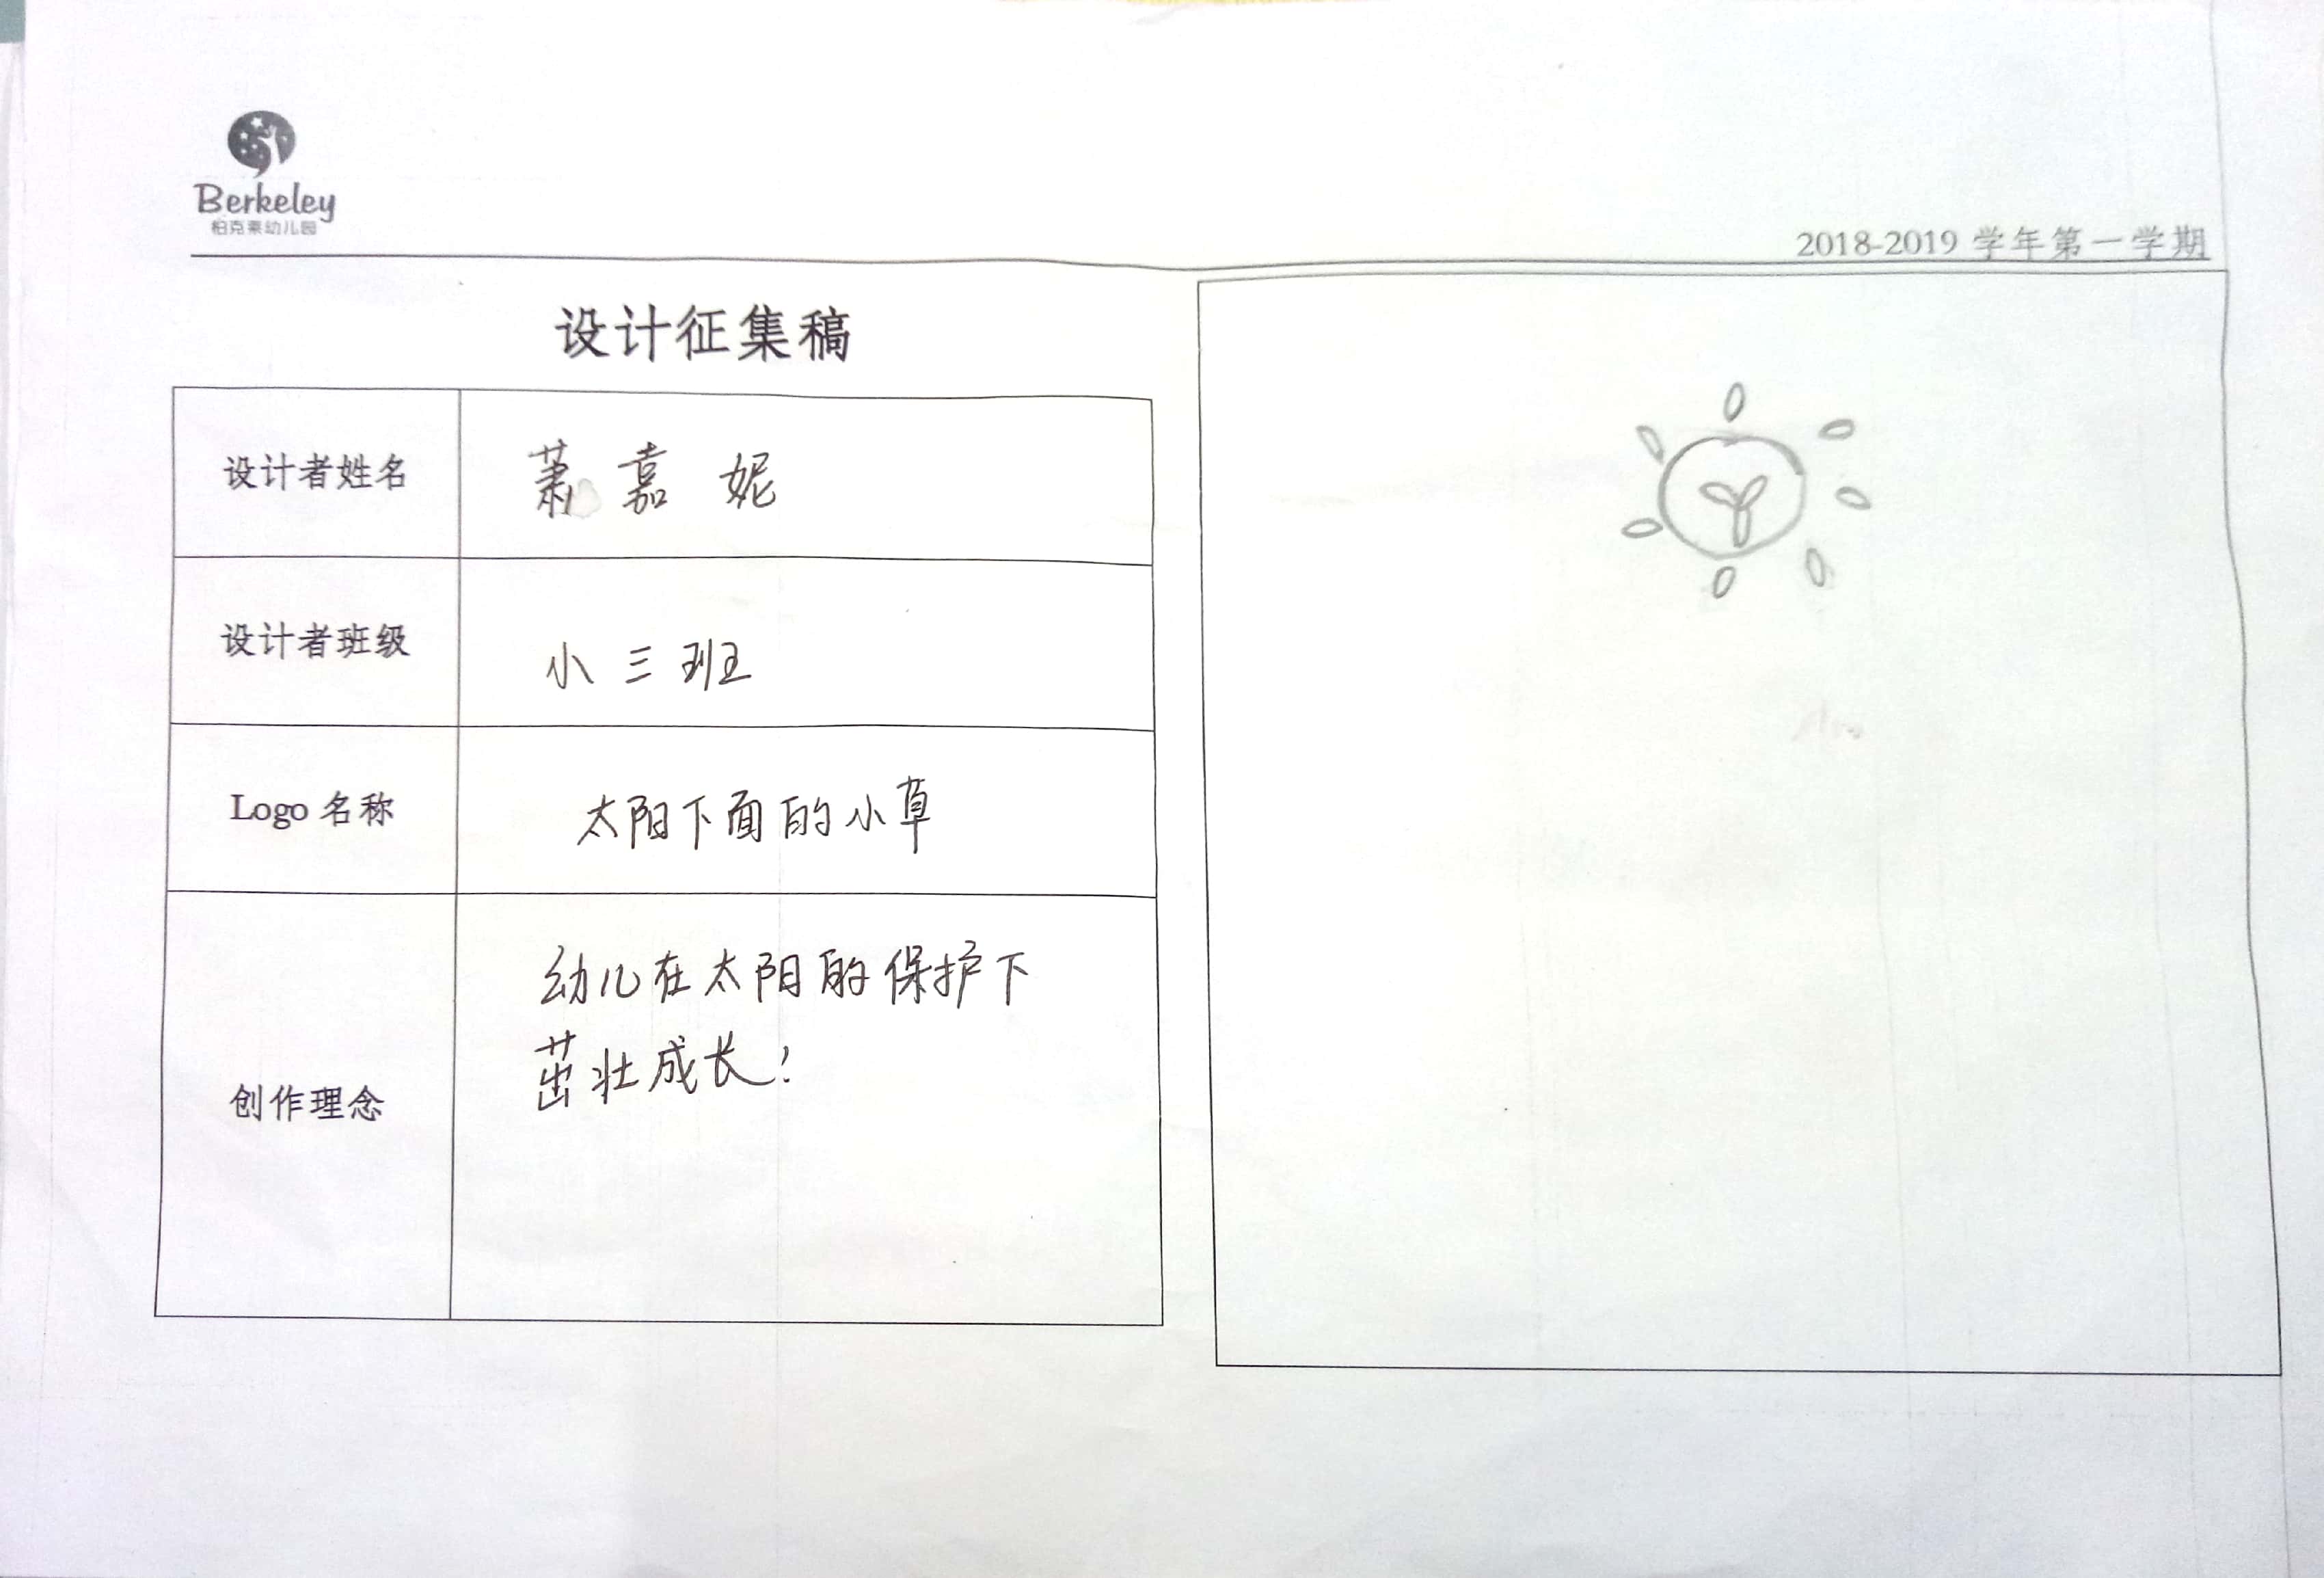 Berkeley
柏克莱幼儿园
2018-2019 学年第一学期
设计征集稿
设计者姓名 萧嘉妮
设计者班级 小三班
Logo 名称 太阳下面的小草
创作理念 幼儿在太阳的保护下
茁壮成长!